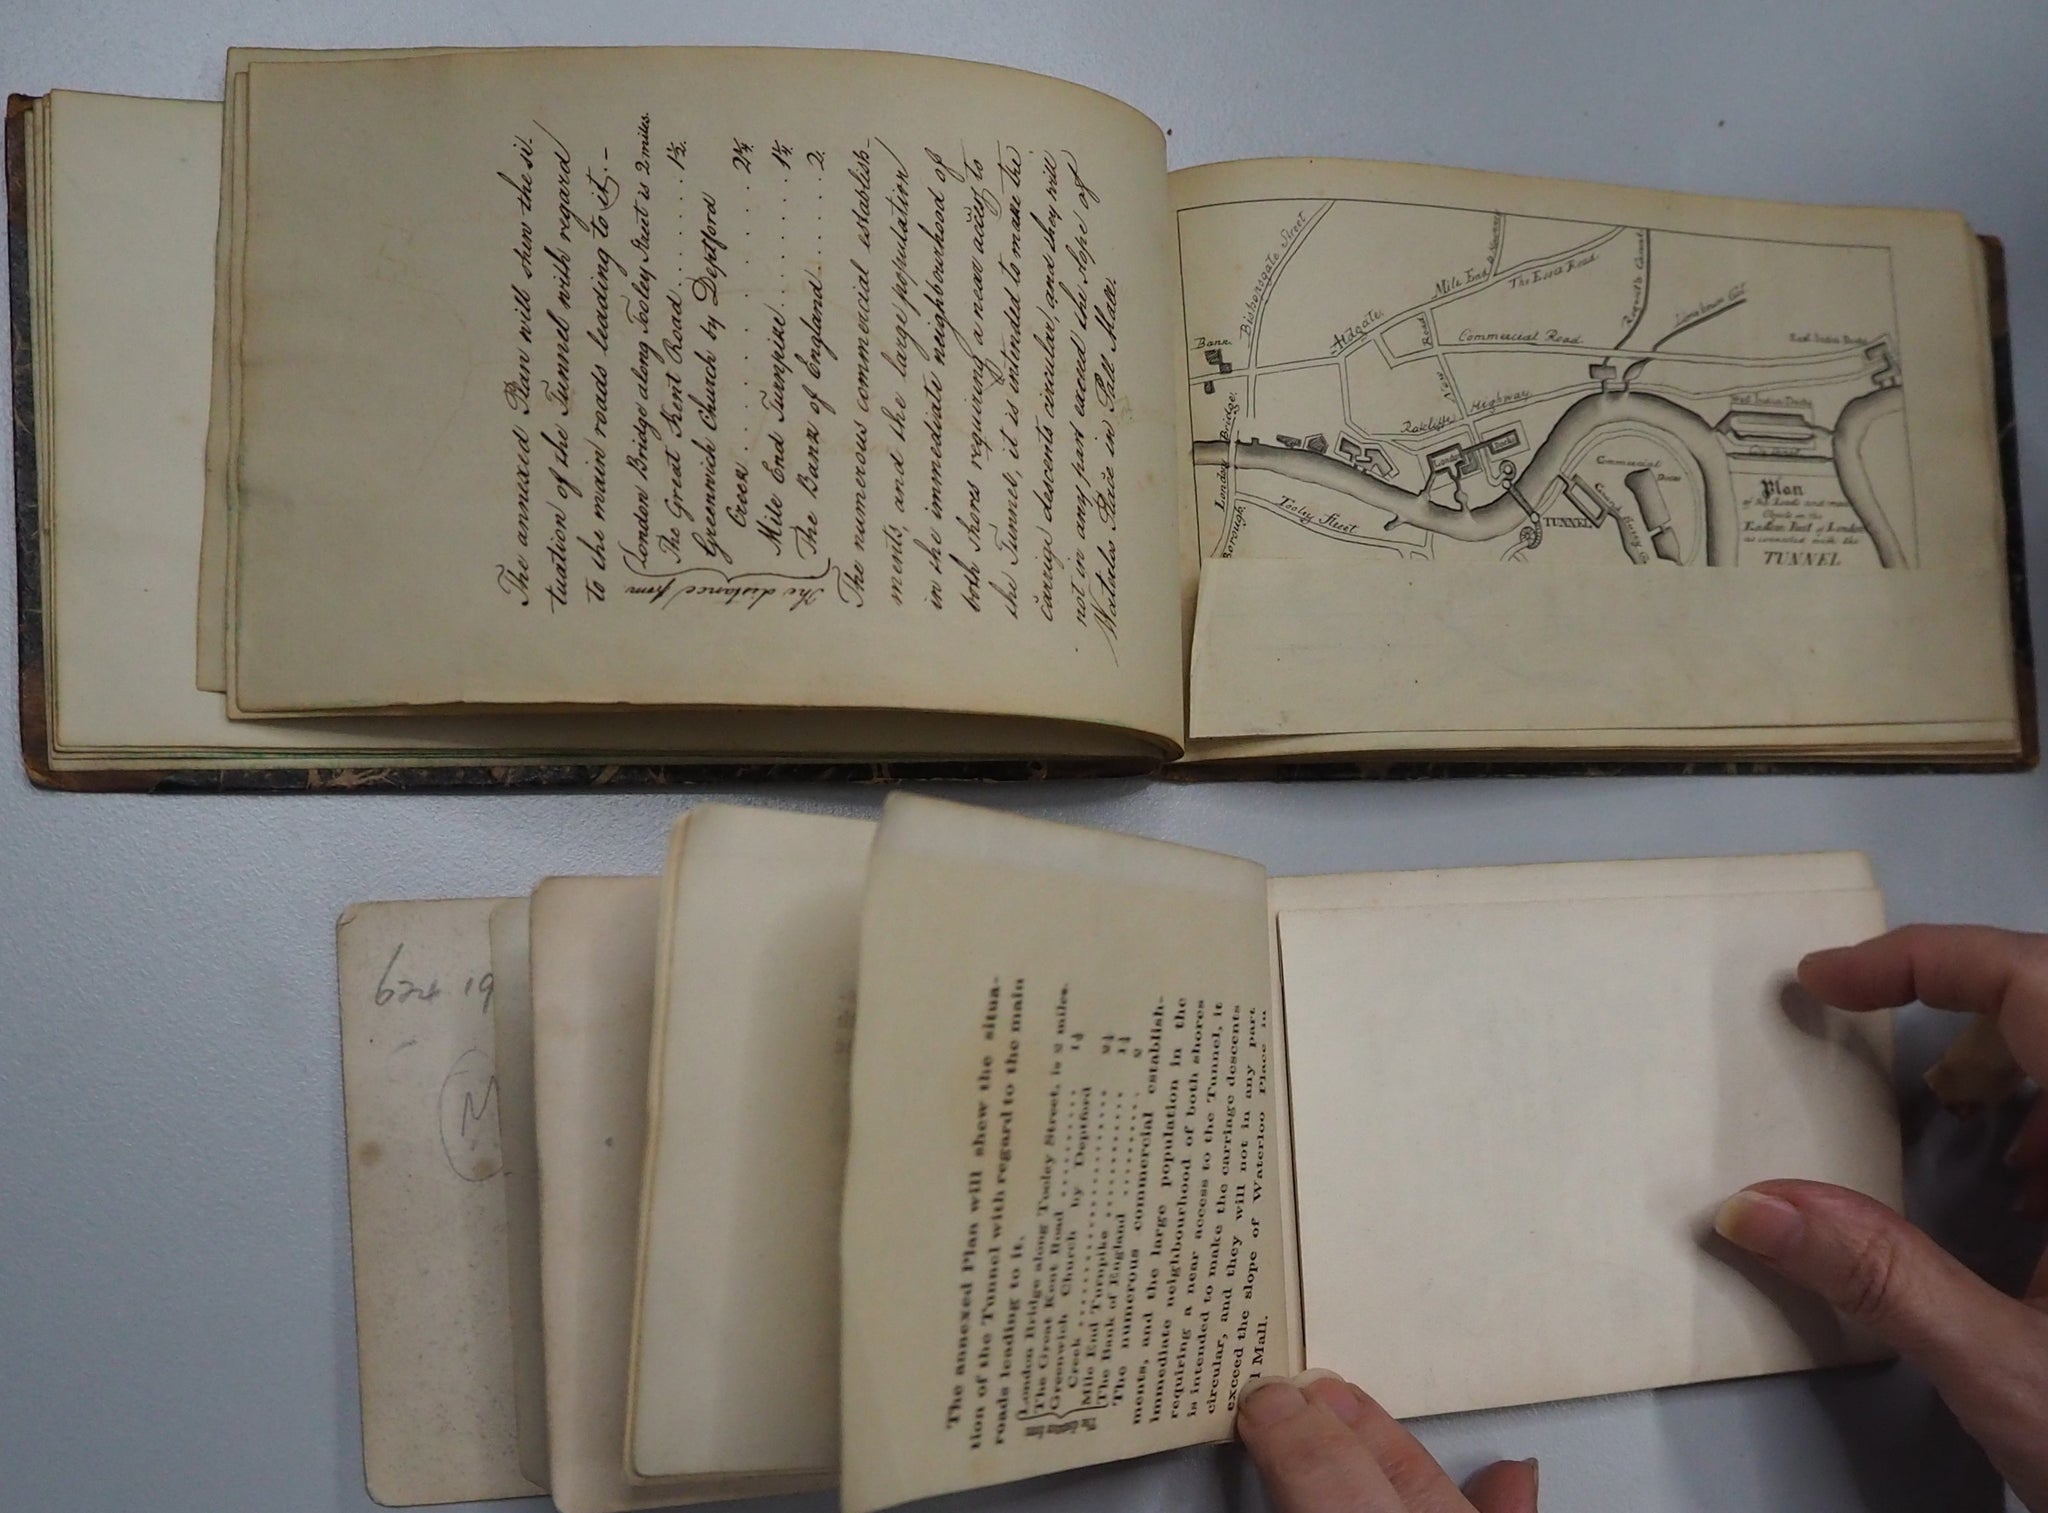 The annexed Plan will shew the si-
tuation of the Tunnel with regard
to the main roads leading to it.-
The distance from
London Bridge along Tooley Street is 2 miles.
The Great Kent Road ........ 1½.
Greenwich Church by Deptford
Creek .......... 2¼.
Mile End Turnpike ....... 1¼.
The Bank of England ..... 2.
The numerous commercial establish-
ments, and the large population
in the immediate neighbourhood of
both shores requiring a near access to
the Tunnel, it is intended to make the
carriage descents circular, and they will
not in any part exceed the slope of
Waterloo Place in Pall Mall.
Bishopsgate Street
Mile End
The Essex Road
Regents Canal
Limehouse Cut
Aldgate
Bank
Road
Commercial Road
East India Docks
New
Highway
Ratcliffe
London Bridge
London
Docks
West India Docks
Commercial
Docks
Borough
Tooley Street
TUNNEL
Plan
of the Roads and main
Objects on the
Eastern Part of London
as connected with the
TUNNEL
624 19
The annexed Plan will shew the situa-
tion of the Tunnel with regard to the main
roads leading to it.
London Bridge along Tooley Street, is 2 miles.
The Great Kent Road ......... 1½
Greenwich Church by Deptford
Creek .................... 2¼
Mile End Turnpike ........... 1¼
The Bank of England ......... 2
The numerous commercial establish-
ments, and the large population in the
immediate neighbourhood of both shores
requiring a near access to the Tunnel, it
is intended to make the carriage descents
circular, and they will not in any part
exceed the slope of Waterloo Place in
Mall.